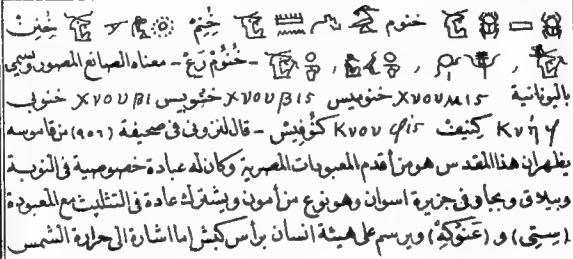 خنوم خنُم خنت
– خُنُوْمْ رَعْ – معناه الصانع المصور وسمى
باليونانية Χνουμις خنوميس Χνουβις خنوبيس Χνουβι خنوبى
Κνήφ كنيف Κνουφις كنُوفيْس – قال لنزونى فى صحيفة (٩٥٦) من قاموسه
يظهر ان هذا المقدس هو من أقدم المعبودات المصرية وكان له عبادة خصوصية فى النوبة
وبيلاق وبجاو فى جزيرة اسوان وهو نوع من أمون ويشترك عادة فى التثليث مع المعبودة
(سيتى) و (عَنُوْكِهْ) ويرسم على هيئة انسان برأس كبش اما اشارة الى حرارة الشمس